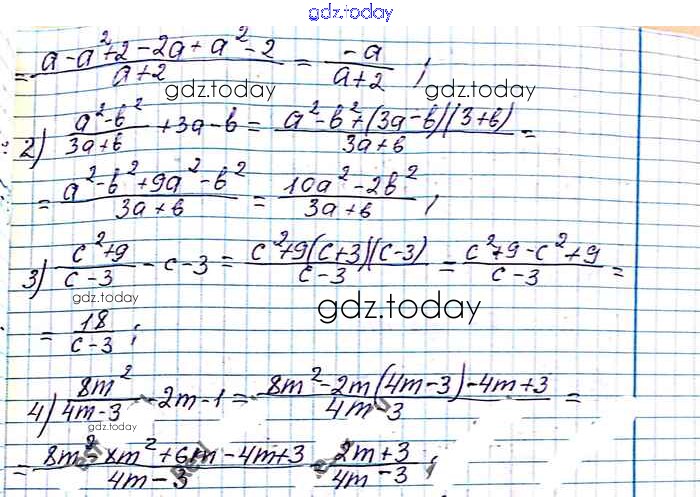 gdz.today
= (a - a² + 2 - 2a + a² - 2)/(a + 2) = (-a)/(a + 2);
gdz.today
2) (a² - b²)/(3a + b) + 3a - b = (a² - b² + (3a - b)(3 + b))/(3a + b) =
= (a² - b² + 9a² - b²)/(3a + b) = (10a² - 2b²)/(3a + b);
3) (c² + 9)/(c - 3) - c - 3 = (c² + 9(c + 3)(c - 3))/(c - 3) = (c² + 9 - c² + 9)/(c - 3) =
gdz.today
gdz.today
= 18/(c - 3);
4) 8m²/(4m - 3) - 2m - 1 = (8m² - 2m(4m - 3) - 4m + 3)/(4m - 3) =
= (8m² - m² + 6m - 4m + 3)/(4m - 3) = (2m + 3)/(4m - 3);